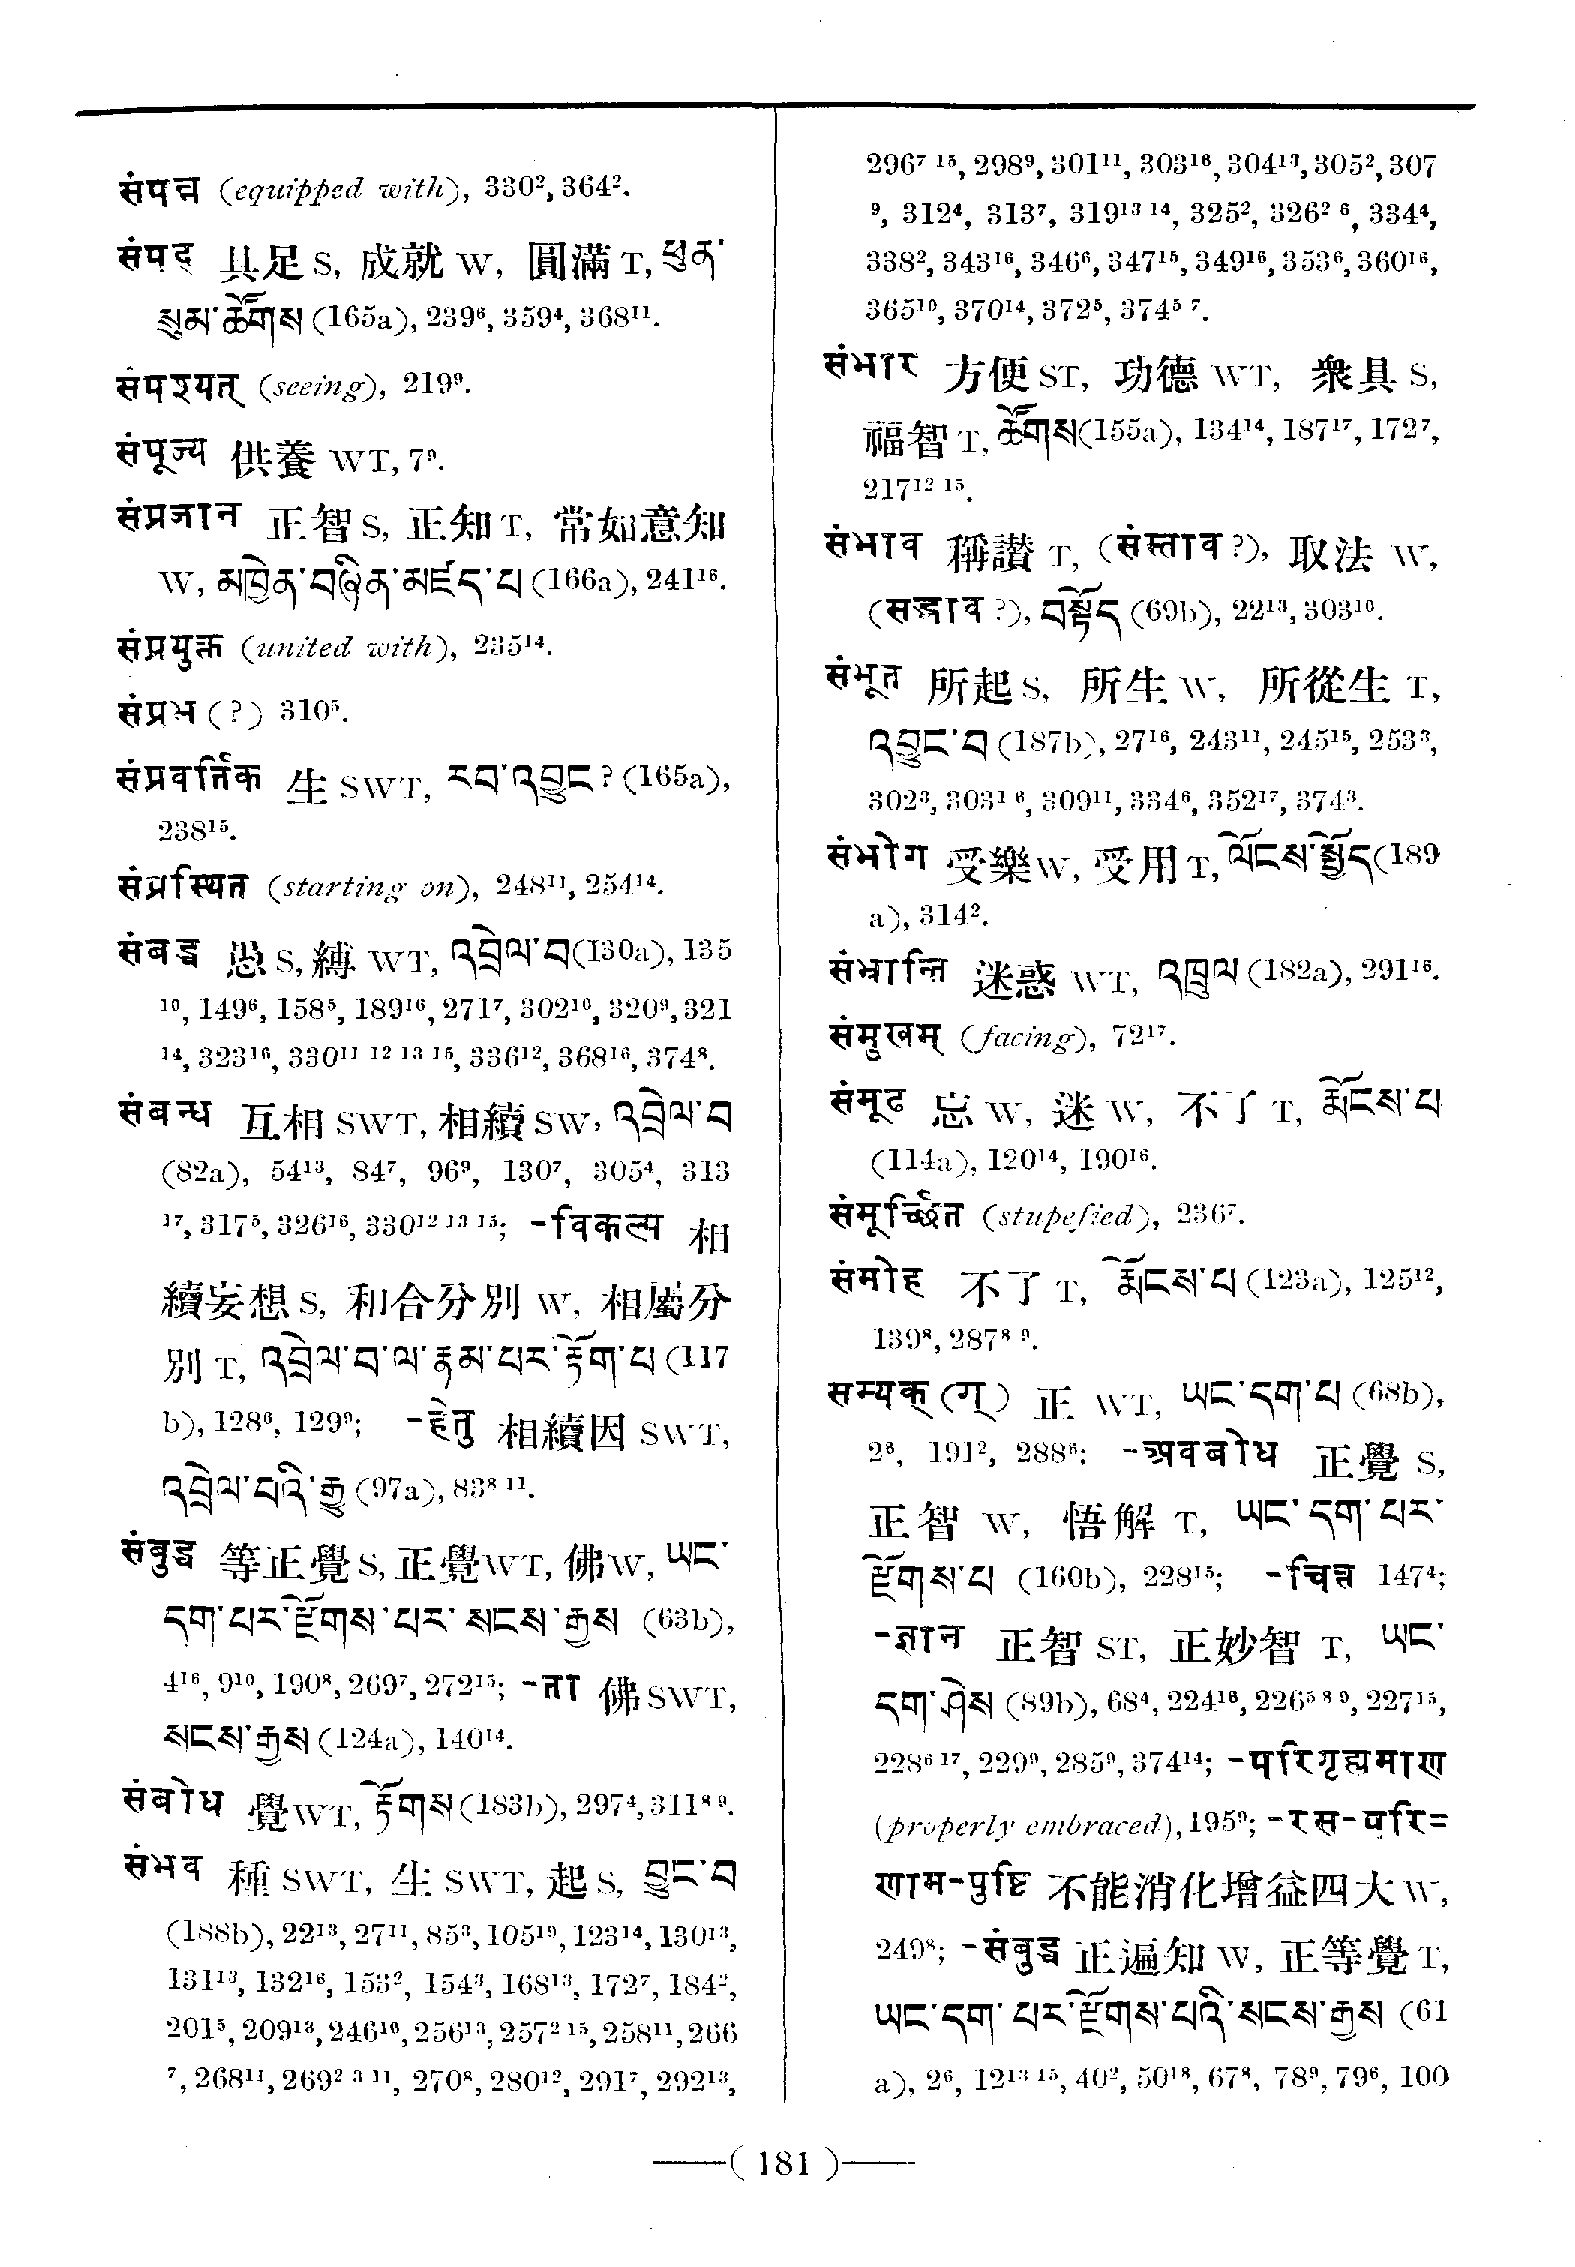 संपन्न (equipped with), 330², 364².
संपद् 具足 S, 成就 W, 圓滿 T, ཕུན་
སུམ་ཚོགས (165a), 239⁶, 359⁴, 368¹¹.
संपश्यत् (seeing), 219⁹.
संपूज्य 供養 WT, 7⁹.
संप्रजान 正智 S, 正知 T, 常如意知
W, མཁྱེན་བཞིན་མཛད་པ (166a), 241¹⁶.
संप्रयुक्त (united with), 235¹⁴.
संप्रभ (?) 310⁵.
संप्रवर्तिक 生 SWT, རབ་འབྱུང? (165a),
238¹⁵.
संप्रस्थित (starting on), 248¹¹, 254¹⁴.
संबद्ध 愚 S, 縛 WT, འབྲེལ་བ (130a), 135
¹⁰, 149⁶, 158⁵, 189¹⁶, 271⁷, 302¹⁰, 320⁹, 321
¹⁴, 323¹⁶, 330¹¹ ¹² ¹³ ¹⁵, 336¹², 368¹⁶, 374⁸.
संबन्ध 互相 SWT, 相續 SW, འབྲེལ་བ
(82a), 54¹³, 84⁷, 96⁹, 130⁷, 305⁴, 313
¹⁷, 317⁵, 326¹⁶, 330¹² ¹³ ¹⁵; -विकल्प 相
續妄想 S, 和合分別 W, 相屬分
別 T, འབྲེལ་བ་ལ་རྣམ་པར་རྟོག་པ (117
b), 128⁶, 129⁹; -हेतु 相續因 SWT,
འབྲེལ་པའི་རྒྱུ (97a), 83⁸ ¹¹.
संबुद्ध 等正覺 S, 正覺 WT, 佛 W, ཡང་
དག་པར་རྫོགས་པར་སངས་རྒྱས (63b),
4¹⁶, 9¹⁰, 190⁸, 269⁷, 272¹⁵; -ता 佛 SWT,
སངས་རྒྱས (124a), 140¹⁴.
संबोध 覺 WT, རྟོགས (183b), 297⁴, 311⁸ ⁹.
संभव 種 SWT, 生 SWT, 起 S, བྱུང་བ
(188b), 22¹³, 27¹¹, 85³, 105¹⁹, 123¹⁴, 130¹³,
131¹³, 132¹⁶, 153², 154³, 168¹³, 172⁷, 184²,
201⁵, 209¹³, 246¹⁰, 256¹³, 257² ¹⁵, 258¹¹, 266
⁷, 268¹¹, 269² ³ ¹¹, 270⁸, 280¹², 291⁷, 292¹³,
296⁷ ¹⁵, 298⁹, 301¹¹, 303¹⁶, 304¹³, 305², 307
⁹, 312⁴, 313⁷, 319¹³ ¹⁴, 325², 326² ⁶, 334⁴,
338², 343¹⁶, 346⁶, 347¹⁵, 349¹⁶, 353⁶, 360¹⁶,
365¹⁰, 370¹⁴, 372⁵, 374⁵ ⁷.
संभार 方便 ST, 功德 WT, 衆具 S,
福智 T, ཚོགས (155a), 134¹⁴, 187¹⁷, 172⁷,
217¹² ¹⁵.
संभाव 稱讃 T, (संस्ताव?), 取法 W,
(सद्भाव?), བསྟོད (69b), 22¹³, 303¹⁰.
संभूत 所起 S, 所生 W, 所從生 T,
འབྱུང་བ (187b), 27¹⁶, 243¹¹, 245¹⁵, 253³,
302³, 303¹ ⁶, 309¹¹, 334⁶, 352¹⁷, 374³.
संभोग 受樂 W, 受用 T, ལོངས་སྤྱོད (189
a), 314².
संभ्रान्ति 迷惑 WT, འཁྲུལ (182a), 291¹⁶.
संमुखम् (facing), 72¹⁷.
संमूढ 忘 W, 迷 W, 不了 T, རྨོངས་པ
(114a), 120¹⁴, 190¹⁶.
संमूर्च्छित (stupefied), 236⁷.
संमोह 不了 T, རྨོངས་པ (123a), 125¹²,
139⁸, 287⁸ ⁹.
सम्यक् (ग्) 正 WT, ཡང་དག་པ (68b),
2⁶, 191², 288⁶; -अवबोध 正覺 S,
正智 W, 悟解 T, ཡང་དག་པར་
རྫོགས་པ (160b), 228¹⁵; -चित्त 147⁴;
-ज्ञान 正智 ST, 正妙智 T, ཡང་
དག་ཤེས (89b), 68⁴, 224¹⁶, 226⁵ ⁸ ⁹, 227¹⁵,
228⁶ ¹⁷, 229⁹, 285⁹, 374¹⁴; -परिगृह्यमाण
(properly embraced), 195⁹; -रस-परि=
णाम-पुष्टि 不能消化增益四大 W,
249⁸; -संबुद्ध 正遍知 W, 正等覺 T,
ཡང་དག་པར་རྫོགས་པའི་སངས་རྒྱས (61
a), 2⁶, 12¹³ ¹⁵, 40², 50¹⁸, 67⁸, 78⁹, 79⁶, 100
—( 181 )—